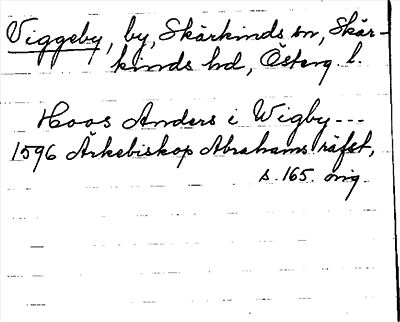 Viggeby, by, Skärkinds sn, Skär-
kinds hd, Österg. l.
Hoos Anders i Wigby---
1596 Ärkebiskop Abrahams räfst,
s. 165. orig.